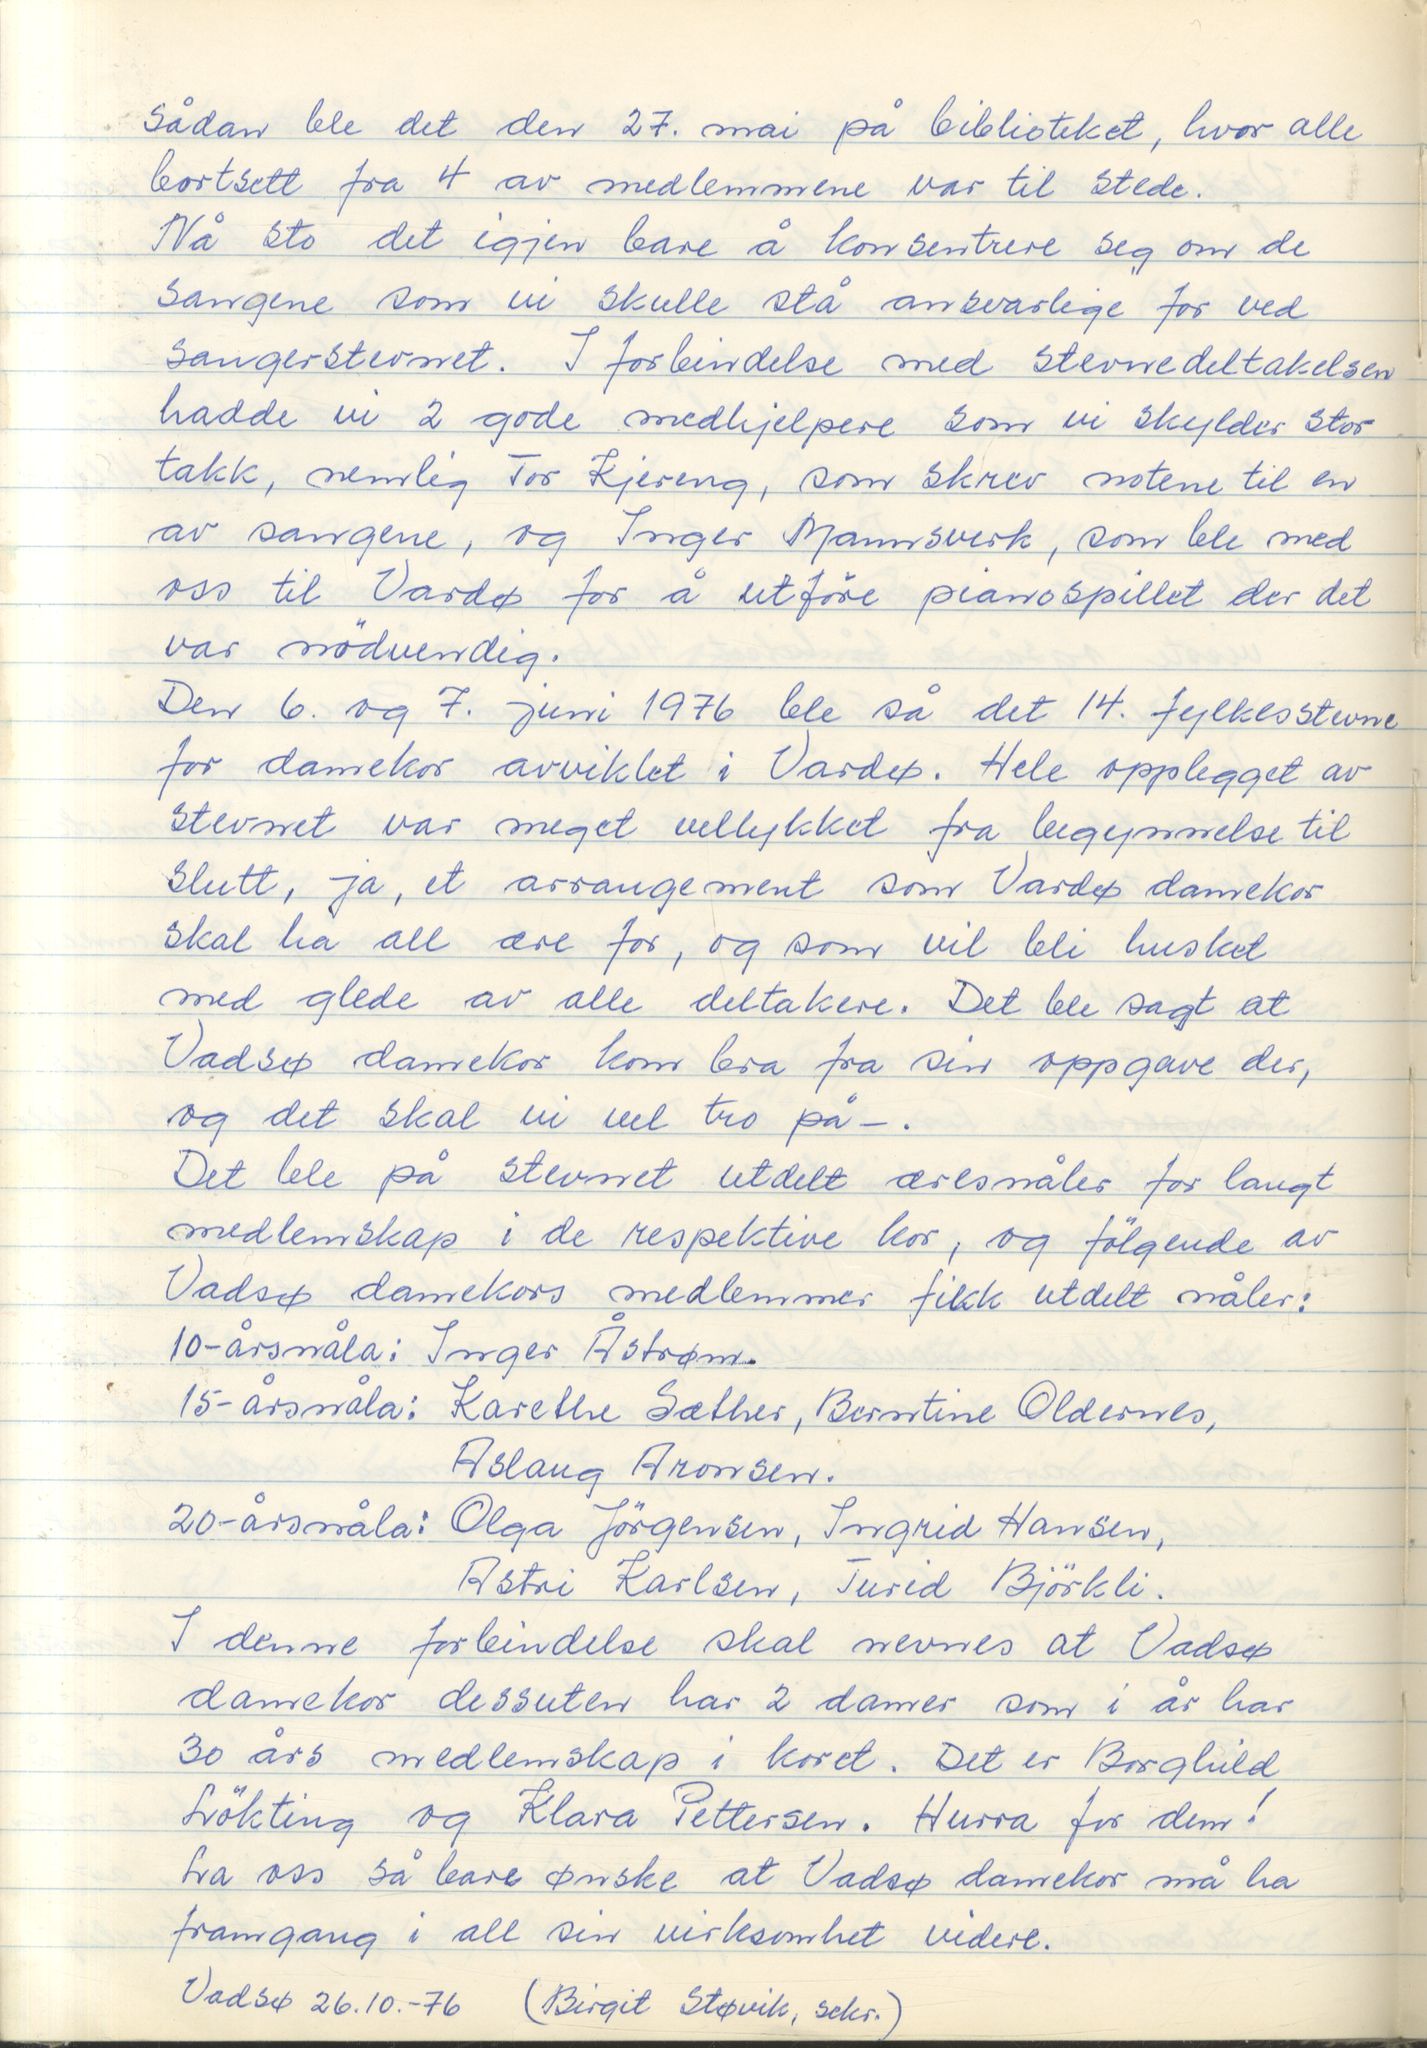 Sådan ble det den 27. mai på biblioteket, hvor alle
bortsett fra 4 av medlemmene var til stede.
Nå sto det igjen bare å konsentrere seg om de
sangene som vi skulle stå ansvarlige for ved
sangerstevnet. I forbindelse med stevnedeltakelsen
hadde vi 2 gode medhjelpere som vi skylder stor
takk, nemlig Tor Kjereng, som skrev notene til en
av sangene, og Inger Mannsverk, som ble med
oss til Vardø for å utföre pianospillet der det
var nödvendig.
Den 6. og 7. juni 1976 ble så det 14. fylkesstevne
for damekor avviklet i Vardø. Hele opplegget av
stevnet var meget vellykket fra begynnelse til
slutt, ja, et arrangement som Vardø damekor
skal ha all ære for, og som vil bli husket
med glede av alle deltakere. Det ble sagt at
Vadsø damekor kom bra fra sin oppgave der,
og det skal vi vel tro på -.
Det ble på stevnet utdelt æresnåler for langt
medlemskap i de respektive kor, og fölgende av
Vadsø damekors medlemmer fikk utdelt nåler:
10-årsnåla: Inger Åstrøm.
15-årsnåla: Karethe Sæther, Berntine Oldernes,
Aslaug Aronsen.
20-årsnåla: Olga Jörgensen, Ingrid Hansen,
Astri Karlsen, Turid Björkli.
I denne forbindelse skal nevnes at Vadsø
damekor dessuten har 2 damer som i år har
30 års medlemskap i koret. Det er Borghild
Lökting og Klara Pettersen. Hurra for dem!
La oss så bare ønske at Vadsø damekor må ha
framgang i all sin virksomhet videre.
Vadsø 26.10.-76 (Birgit Støvik, sekr.)